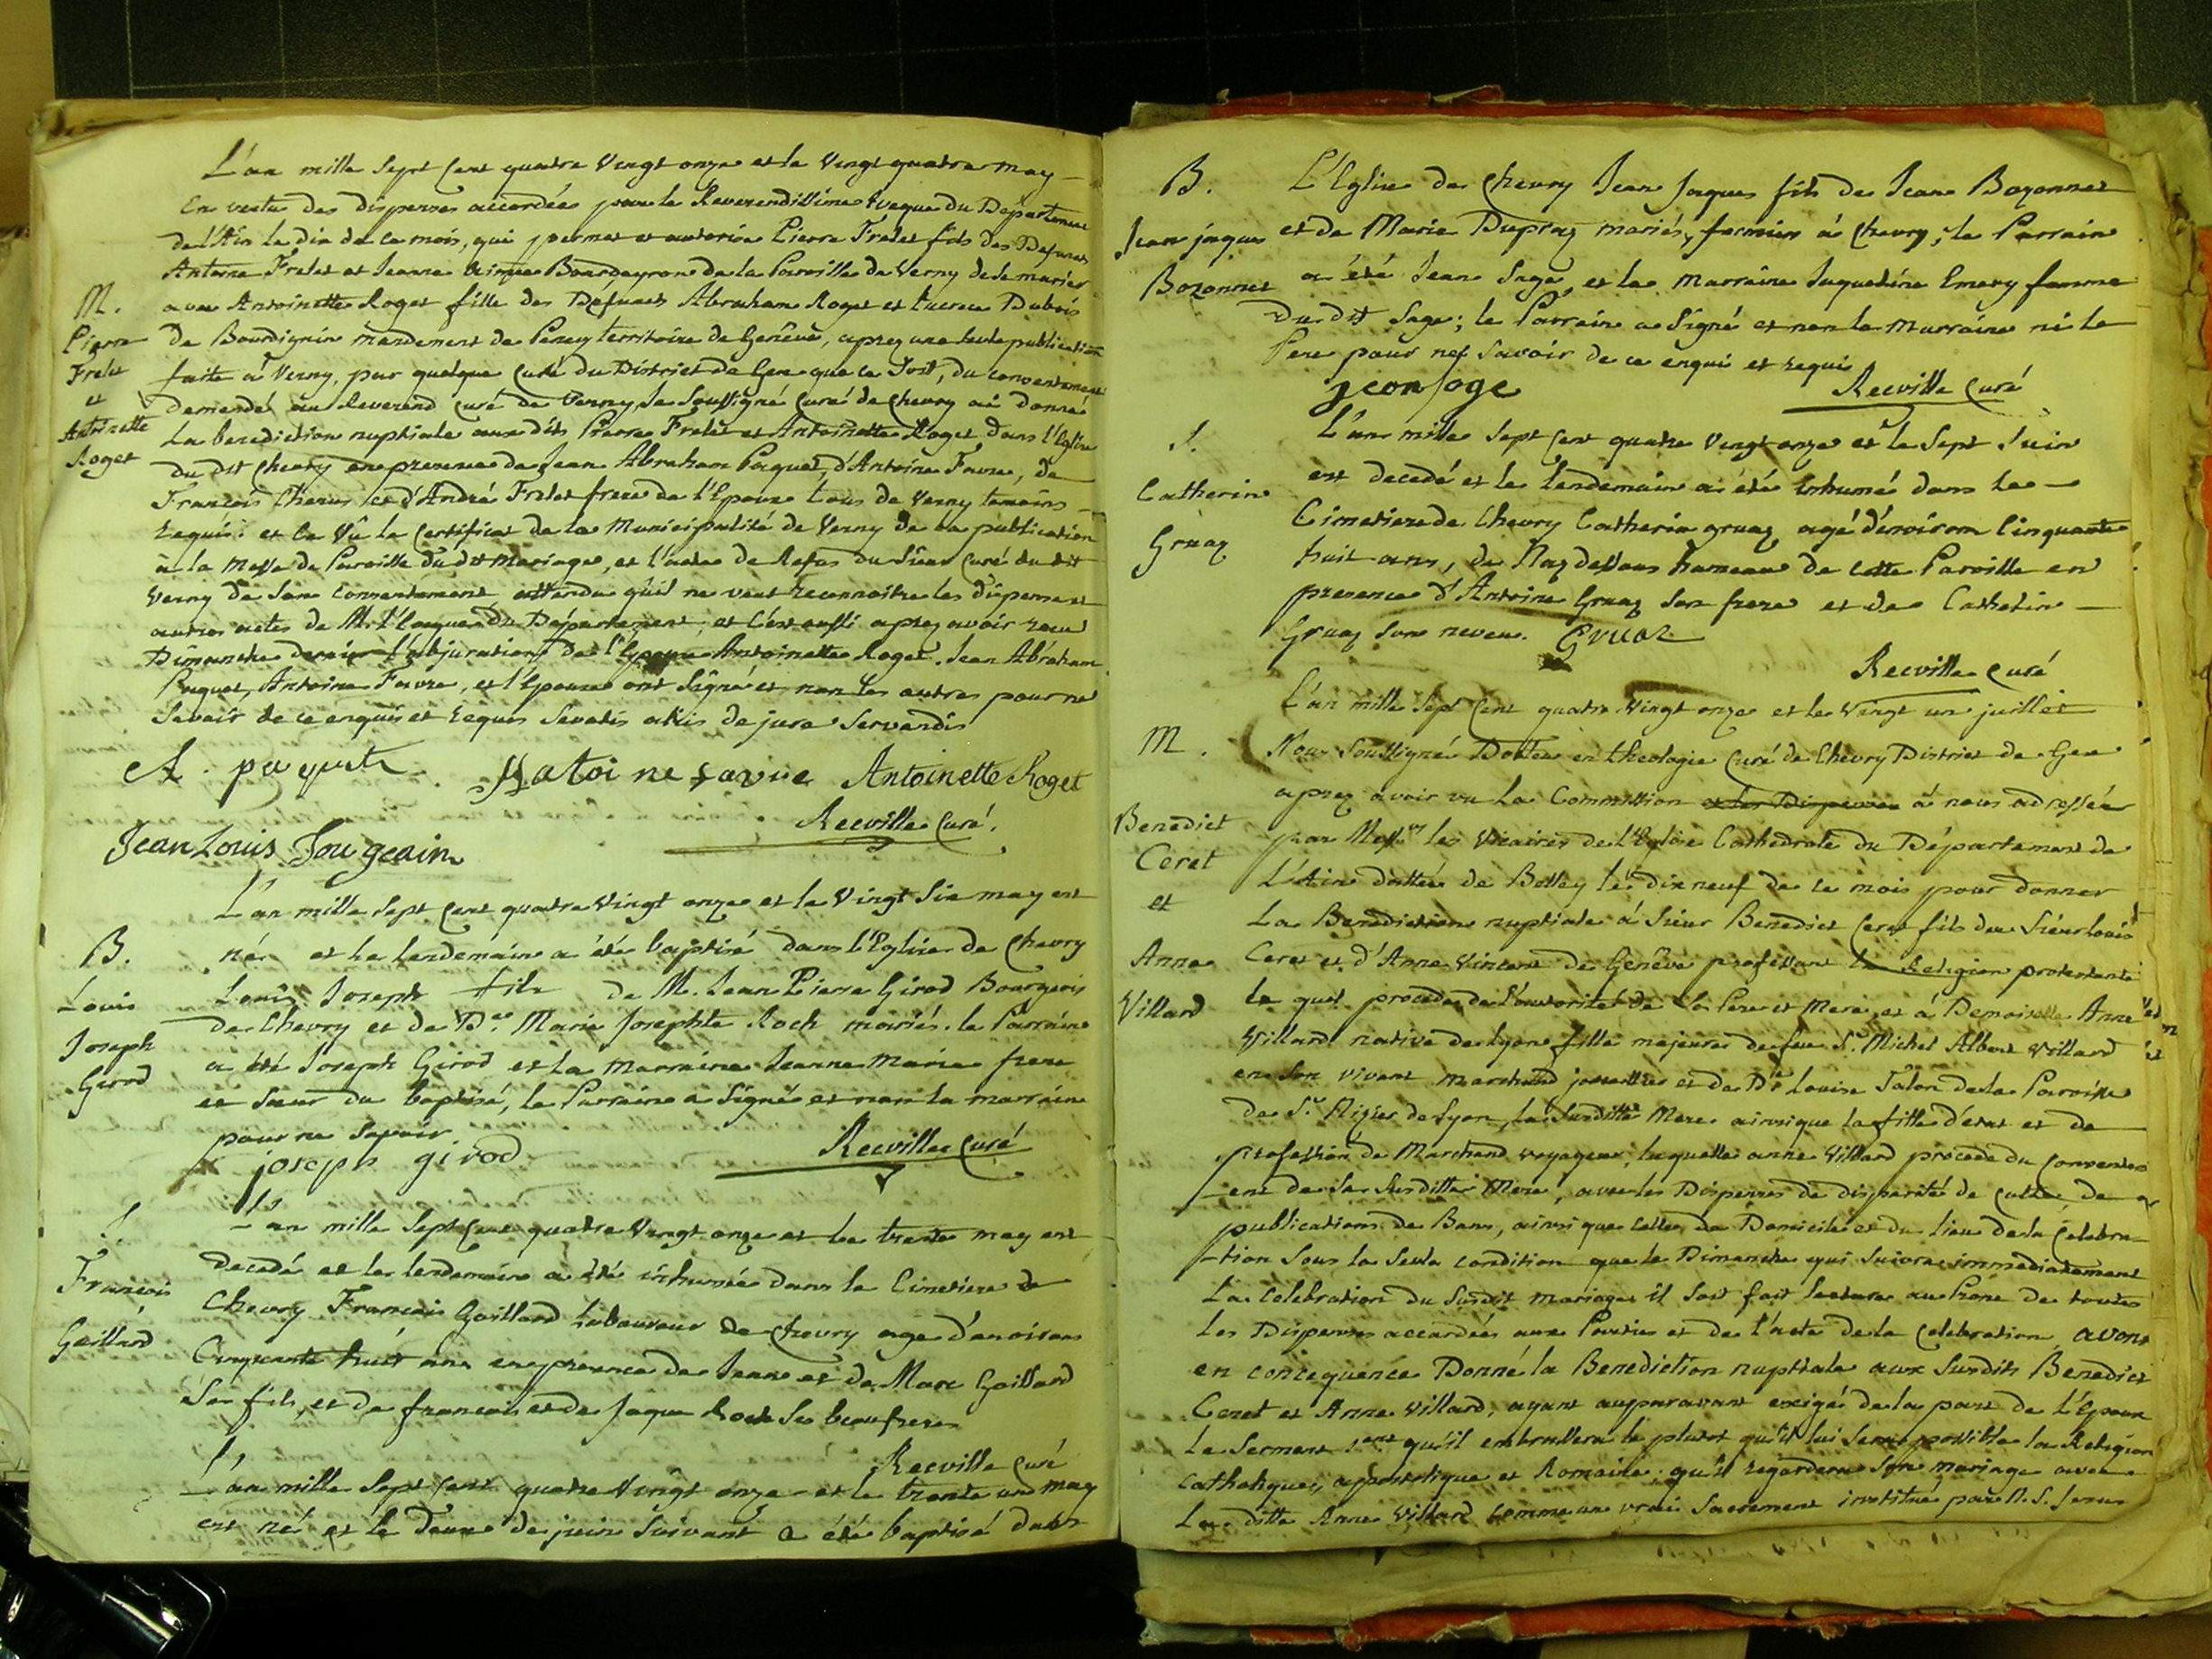 L'an mille Sept Cent quatre Vingt onze et le Vingt quatre may
En vertu des dispenses accordées par le Reverendissime Eveque du Departement
de l'Ain le dix de ce mois, qui permet et autorise Pierre Frelet fils des Defunts
Antoine Frelet et Jeanne Aimée Bourgeyron de la Paroisse de Verny de se marier
M.
avec Antoinette Roget fille des Defunts Abraham Roget et Lucrece Dubois
Pierre
de Bourdignin mandement de Peney territoire de Genêve, aprez une seule publication
Frelet
faite à Verny, par quelque Curé du District de Gex que ce soit, du consentement
et
demandé au Reverend Curé de Verny, Je Soussigné Curé de Chevry ai donné
Antoinette
La benediction nuptiale aux dits Pierre Frelet et Antoinette Roget dans l'Eglise
Roget
du dit Chevry en presence de Jean Abraham Paquet, d'Antoine Favre, de
François Cherus et d'André Frelet frere de l'Epoux tous de Verny temoins
requis: et ce Vû le Certificat de la Municipalité de Verny de la publication
à la Messe de Paroisse du dit Mariage, et l'acte de Refus du Sieur Curé du dit
Verny de son consentement attendu qu'il ne veut reconnoitre les dispenses et
autres actes de Mr. l'Eveque du Departement, et c'est aussi aprez avoir recu
Dimanche dernier l'abjuration de l'Epouse Antoinette Roget. Jean Abraham
Paquet, Antoine Favre, et l'Epouse ont Signé et non les autres pour ne
Savoir de ce enquis et requis Servatis aliis de jure Servandis
A. paquet Antoine favre Antoinette Roget
Recville Curé.
Jean Louis Fougeain
L'an mille Sept Cent quatre Vingt onze et le Vingt Six may est
B.
né et le lendemain a été baptisé dans l'Eglise de Chevry
Louis
Louis Joseph fils de M. Jean Pierre Girod Bourgeois
de Chevry et de De. Marie Josephte Roch mariés. le Parrain
Joseph
a été Joseph Girod et la Marraine Jeanne Marie frere
Girod
et Sœur du baptisé, le Parrain a Signé et non la marraine
pour ne Savoir
joseph girod Recville Curé
S.
L'an mille Sept Cent quatre Vingt onze et le trente may est
decedé et le lendemain a été inhumé dans le Cimetiere de
François
Chevry François Gaillard Laboureur de Chevry agé d'environ
Gaillard
Cinquante huit ans en presence de Jean et de Marc Gaillard
Ses fils, et de francois et de Jaque Roch Ses beaufreres
Recville Curé
L'an mille Sept Cent quatre Vingt onze et le trente un may
est né et le deux de juin Suivant a été baptisé dans
B.
L'Eglise de Chevry Jean Jaques fils de Jean Bozonnet
Jean jaques
et de Marie Dupraz mariés, fermiers à Chevry; le Parrain
Bozonnet
a été Jean Sage, et la Marraine Jaquetine Emery femme
Du dit Sage; le Parrain a Signé et non la Marraine ni le
Pere pour ne Savoir de ce enquis et requis
jean sage Recville Curé
S.
L'an mille Sept Cent quatre Vingt onze et le Sept Juin
est decedé et le lendemain a été Inhumé dans le
Catherin
Cimetiere de Chevry Catherin gruaz agé d'environ Cinquante
Gruaz
huit ans, de Naz dessous hameau de cette Paroisse en
presence d'Antoine Gruaz son frere et de Catherin
Gruaz son neveu. Gruaz
Recville Curé
L'an mille Sept Cent quatre Vingt onze et le Vingt un juillet
M.
Nous Soussigné Docteur en theologie Curé de Chevry District de Gex
aprez avoir vu la Commission et les Dispenses à nous adressée
Benedict
par Messrs les Vicaires de l'Eglise Cathedrale du Département de
Ceret
L'Ain dattée de Belley le dix neuf de ce mois pour donner
et
La Benediction nuptiale à Sieur Benedict Ceret fils du Sieur Louis
Anne
Ceret et d'Anne Vincent de Genêve professant la Religion protestante
Villard
le quel procede de l'autorité de Ses Pere et Mere, et à Demoiselle Anne
Villard native de Lyon fille majeure de feu Sr. Michel Albert Villard
en Son vivant Marchand jouaillier et de De Louise Talon de la Paroisse
de St. Nizier de Lyon, la Susditte Mere ainsi que la fille d'etat et de
profession de Marchand Voyageur, laquelle anne Villard procede du Consentem
-ent de la Susditte Mere, avec les Dispenses de disparité de culte, de
publications de Bans, ainsi que celles de Domicile et du lieu de la Celebra-
-tion Sous la Seule condition que le Dimanche qui Suivra immediatement
La Celebration du Susdit mariage il Soit fait lecture au Prône de toutes
Les Dispenses accordées aux Parties et de l'acte de la Celebration, avons
en concequence Donné la Benediction nuptiale aux Susdits Benedict
Ceret et Anne Villard, ayant auparavant exigé de la part de l'Epoux
le Serment qu'il embrassera le plutot qu'il lui Sera possible la Religion
Catholique, appostolique et Romaine; qu'il regardera Son mariage avec
La ditte Anne Villard comme un vrai Sacrement institué par N. S. Jesus